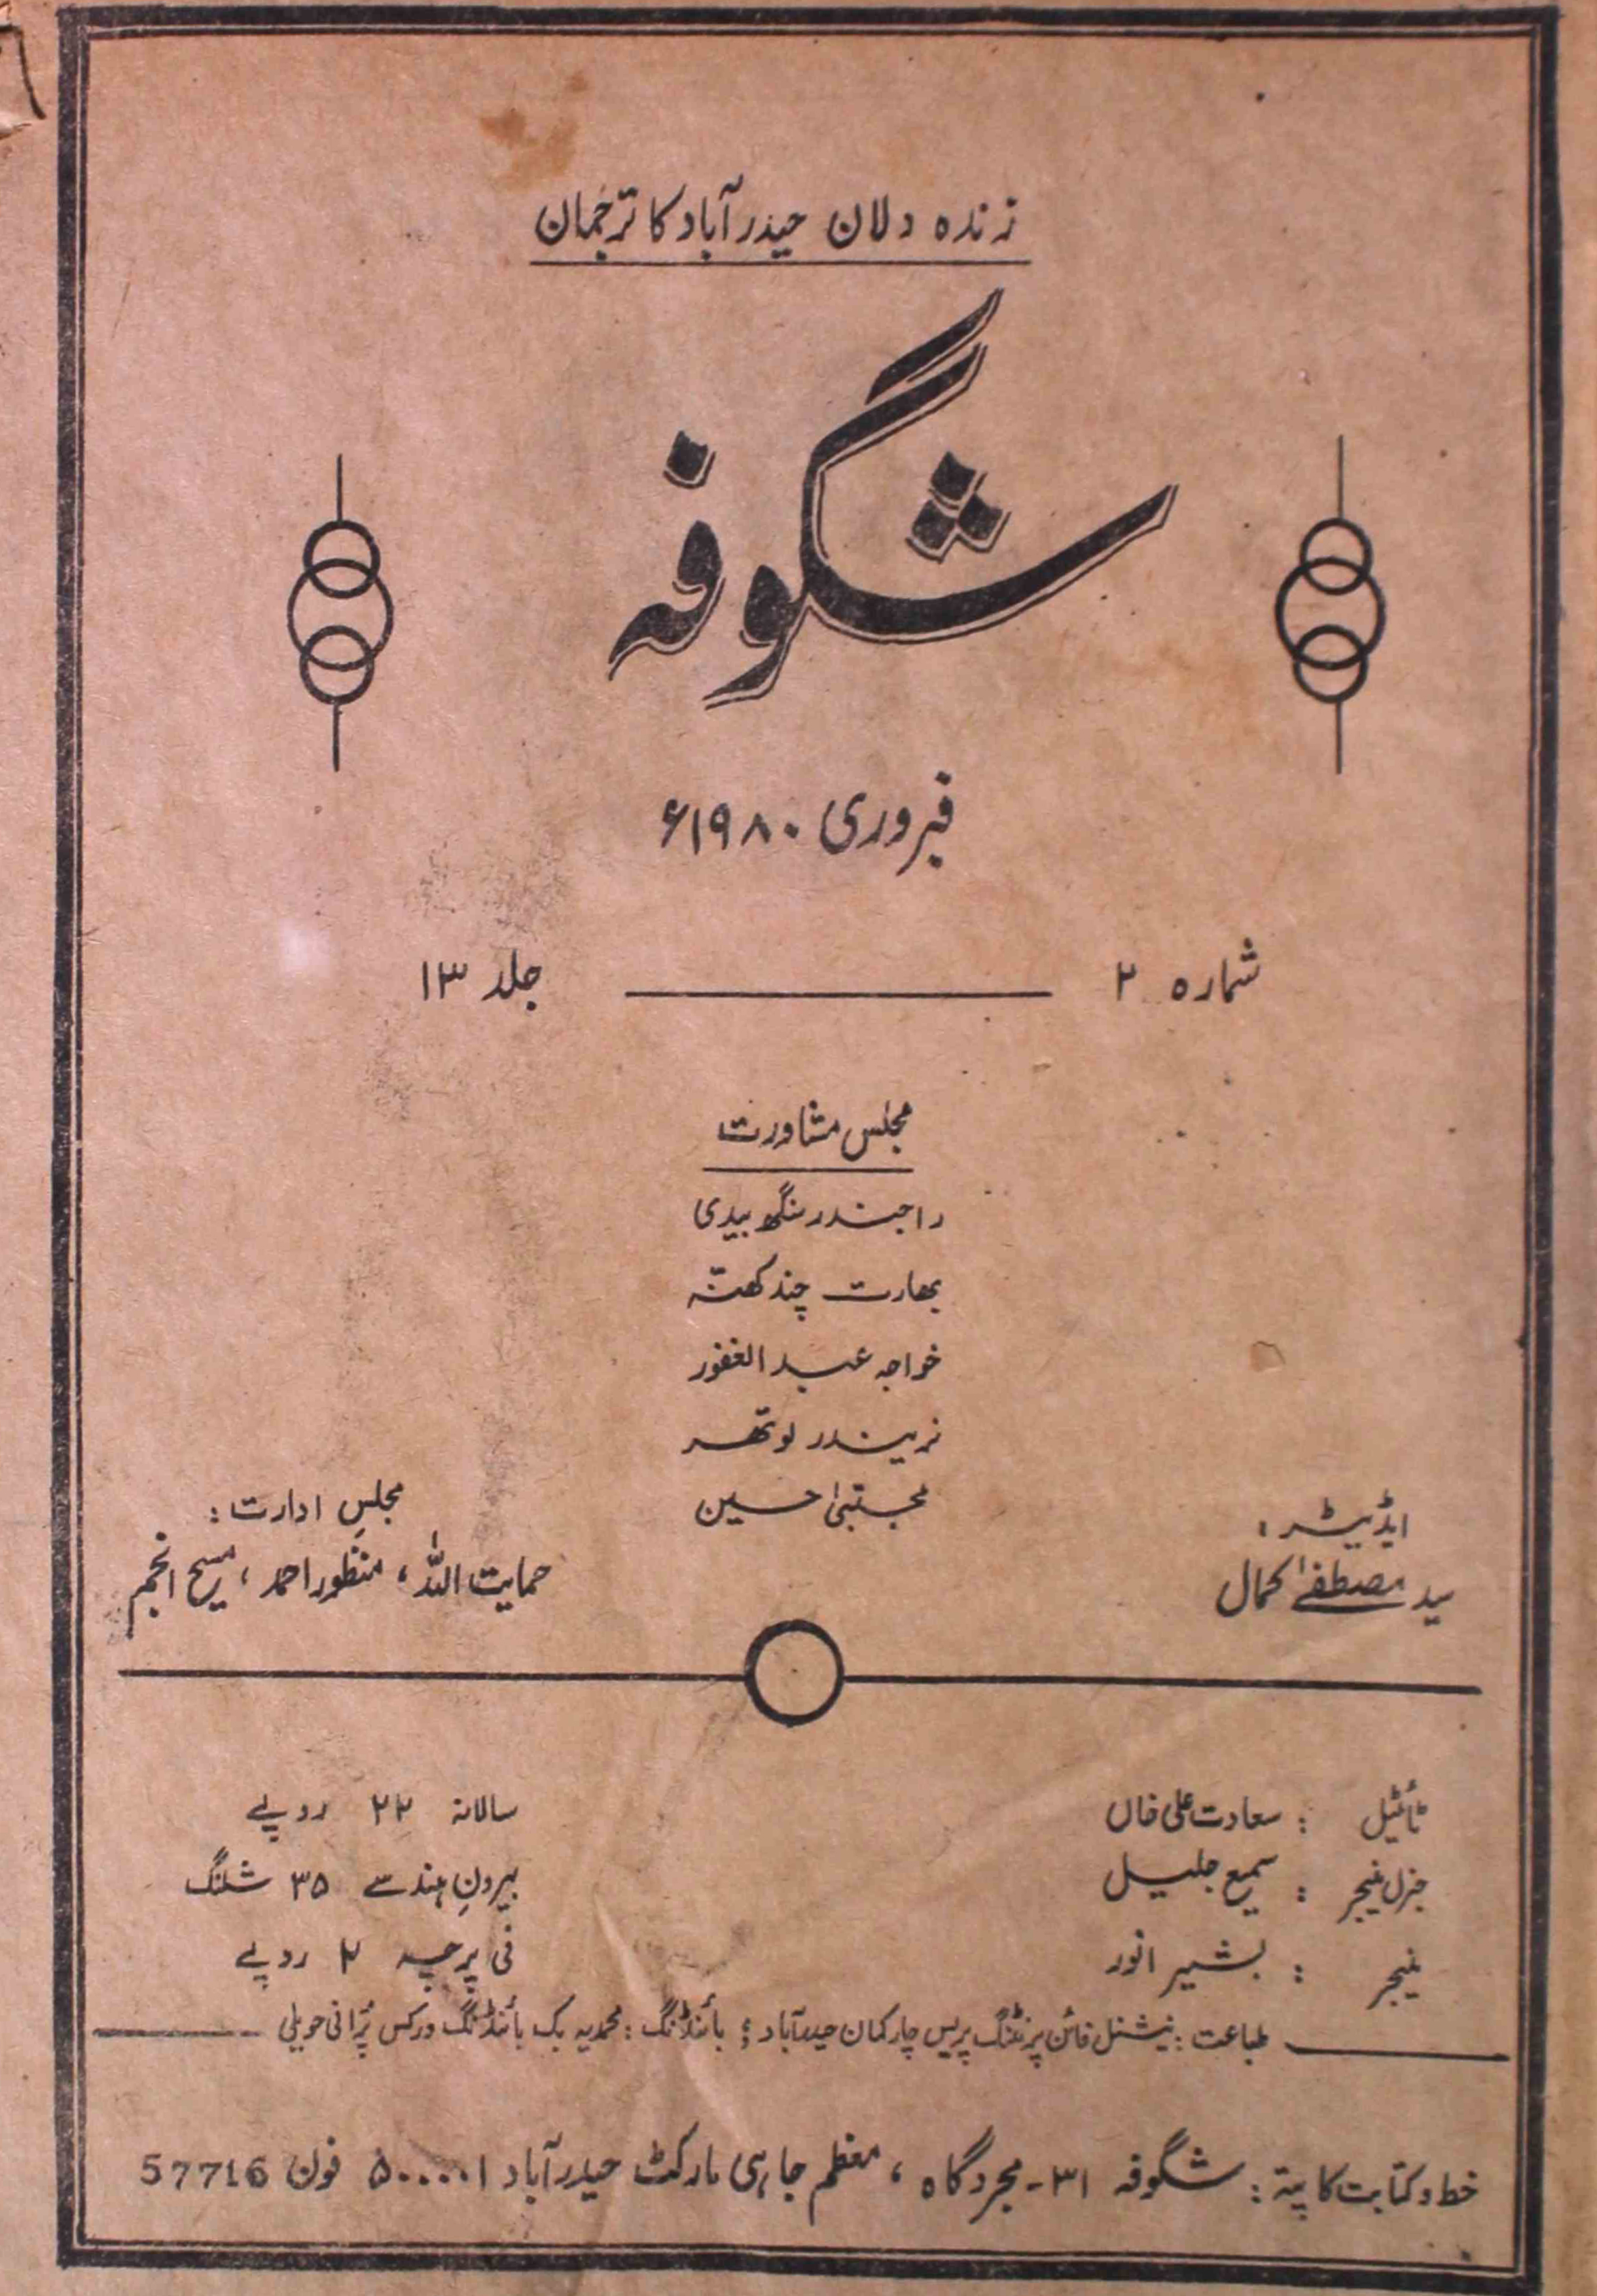 زندہ دلان حیدرآباد کا ترجمان
شگوفہ
فبروری ۱۹۸۰ء
شمارہ ۲ جلد ۱۳
مجلس مشاورت
راجندر سنگھ بیدی
بھارت چند کھنّہ
خواجہ عبدالغفور
نریندر لوتھر
مجتبیٰ حسین
ایڈیٹر:
سید مصطفےٰ کمال
مجلسِ ادارت:
حمایت اللہ، منظور احمد، مسیح انجم
ٹائٹیل : سعادت علی خاں
جنرل منیجر : سمیع جلیل
منیجر : بشیر انور
سالانہ ۲۲ روپے
بیرونِ ہند سے ۳۵ شلنگ
فی پرچہ ۲ روپے
طباعت: نیشنل فائن پرنٹنگ پریس چارکمان حیدرآباد؛ بائنڈنگ: محمدیہ بک بائنڈنگ ورکس پُرانی حویلی
خط و کتابت کا پتہ: شگوفہ ۳۱۔ مجردگاہ، معظم جاہی مارکٹ حیدرآباد ۵۰۰۰۰۱ فون 57716